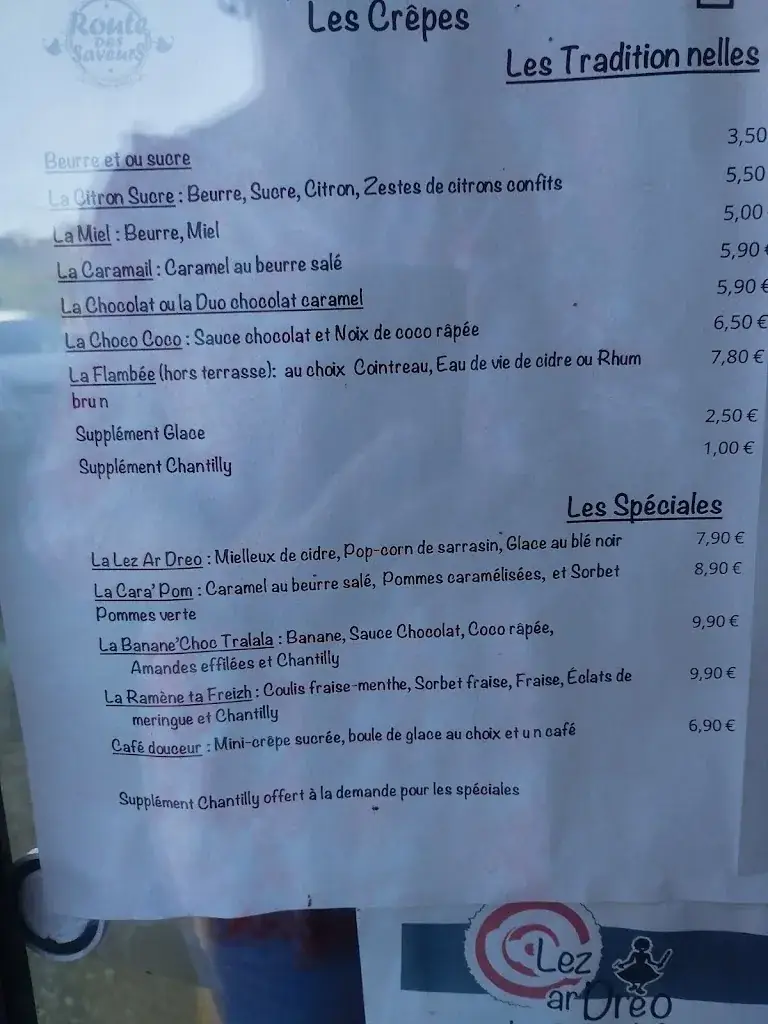 Route
DES
Saveurs
Les Crêpes
Les Tradition nelles
Beurre et ou sucre 3,50
La Citron Sucre : Beurre, Sucre, Citron, Zestes de citrons confits 5,50
La Miel : Beurre, Miel 5,00
La Caramail : Caramel au beurre salé 5,90 €
La Chocolat ou la Duo chocolat caramel 5,90 €
La Choco Coco : Sauce chocolat et Noix de coco râpée 6,50 €
La Flambée (hors terrasse): au choix Cointreau, Eau de vie de cidre ou Rhum 7,80 €
brun
Supplément Glace 2,50 €
Supplément Chantilly 1,00 €
Les Spéciales
La Lez Ar Dreo : Mielleux de cidre, Pop-corn de sarrasin, Glace au blé noir 7,90 €
La Cara'Pom : Caramel au beurre salé, Pommes caramélisées, et Sorbet 8,90 €
Pommes verte
La Banane'Choc Tralala : Banane, Sauce Chocolat, Coco râpée, 9,90 €
Amandes effilées et Chantilly
La Ramène ta Freizh : Coulis fraise-menthe, Sorbet fraise, Fraise, Éclats de 9,90 €
meringue et Chantilly
Café douceur : Mini-crêpe sucrée, boule de glace au choix et un café 6,90 €
Supplément Chantilly offert à la demande pour les spéciales
Lez
ar Dreo